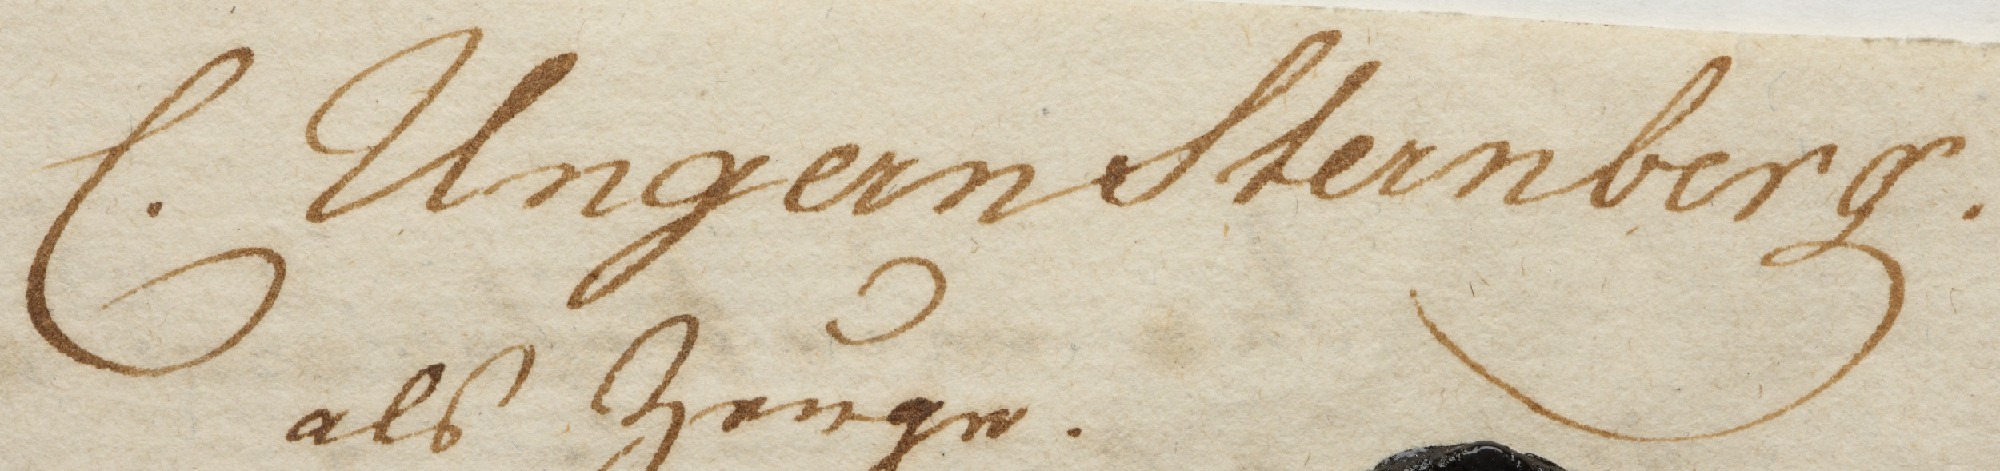 C. Ungern Sternberg.
als Zeuge.